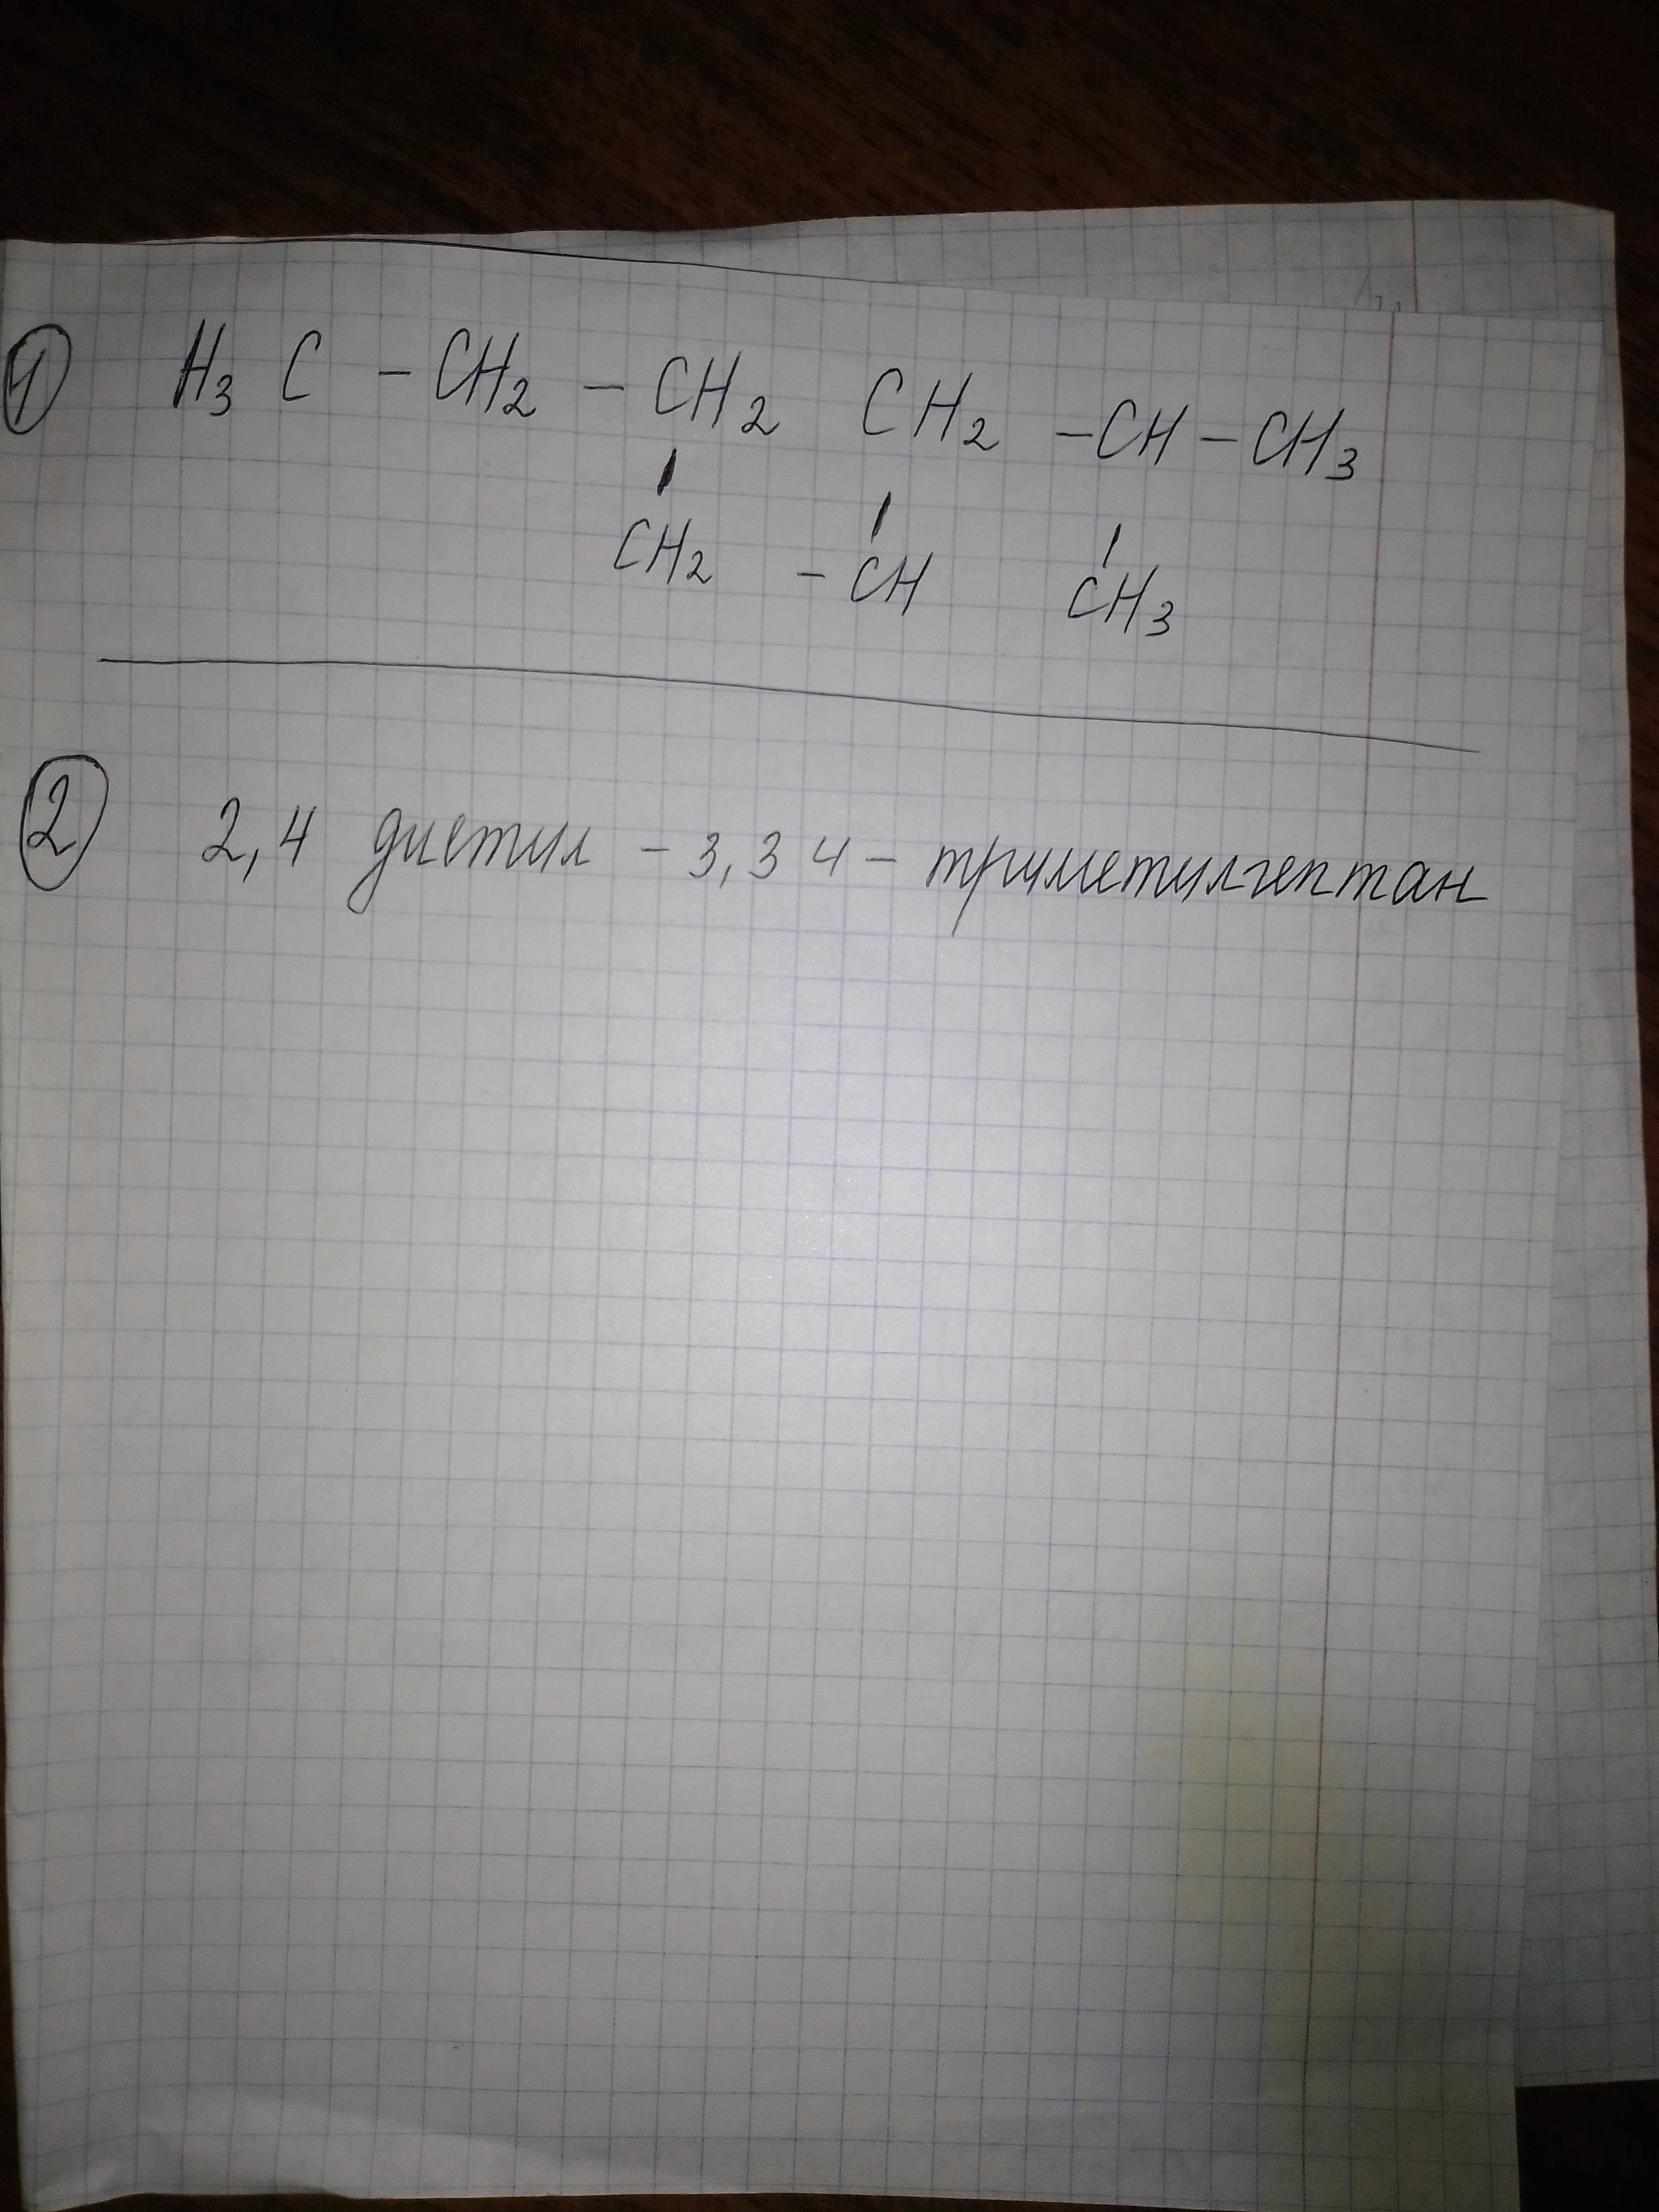 1 H3 C - CH2 - CH2 CH2 - CH - CH3
CH2 - CH CH3
2 2,4 диетил - 3,3 4 - триметилгептан